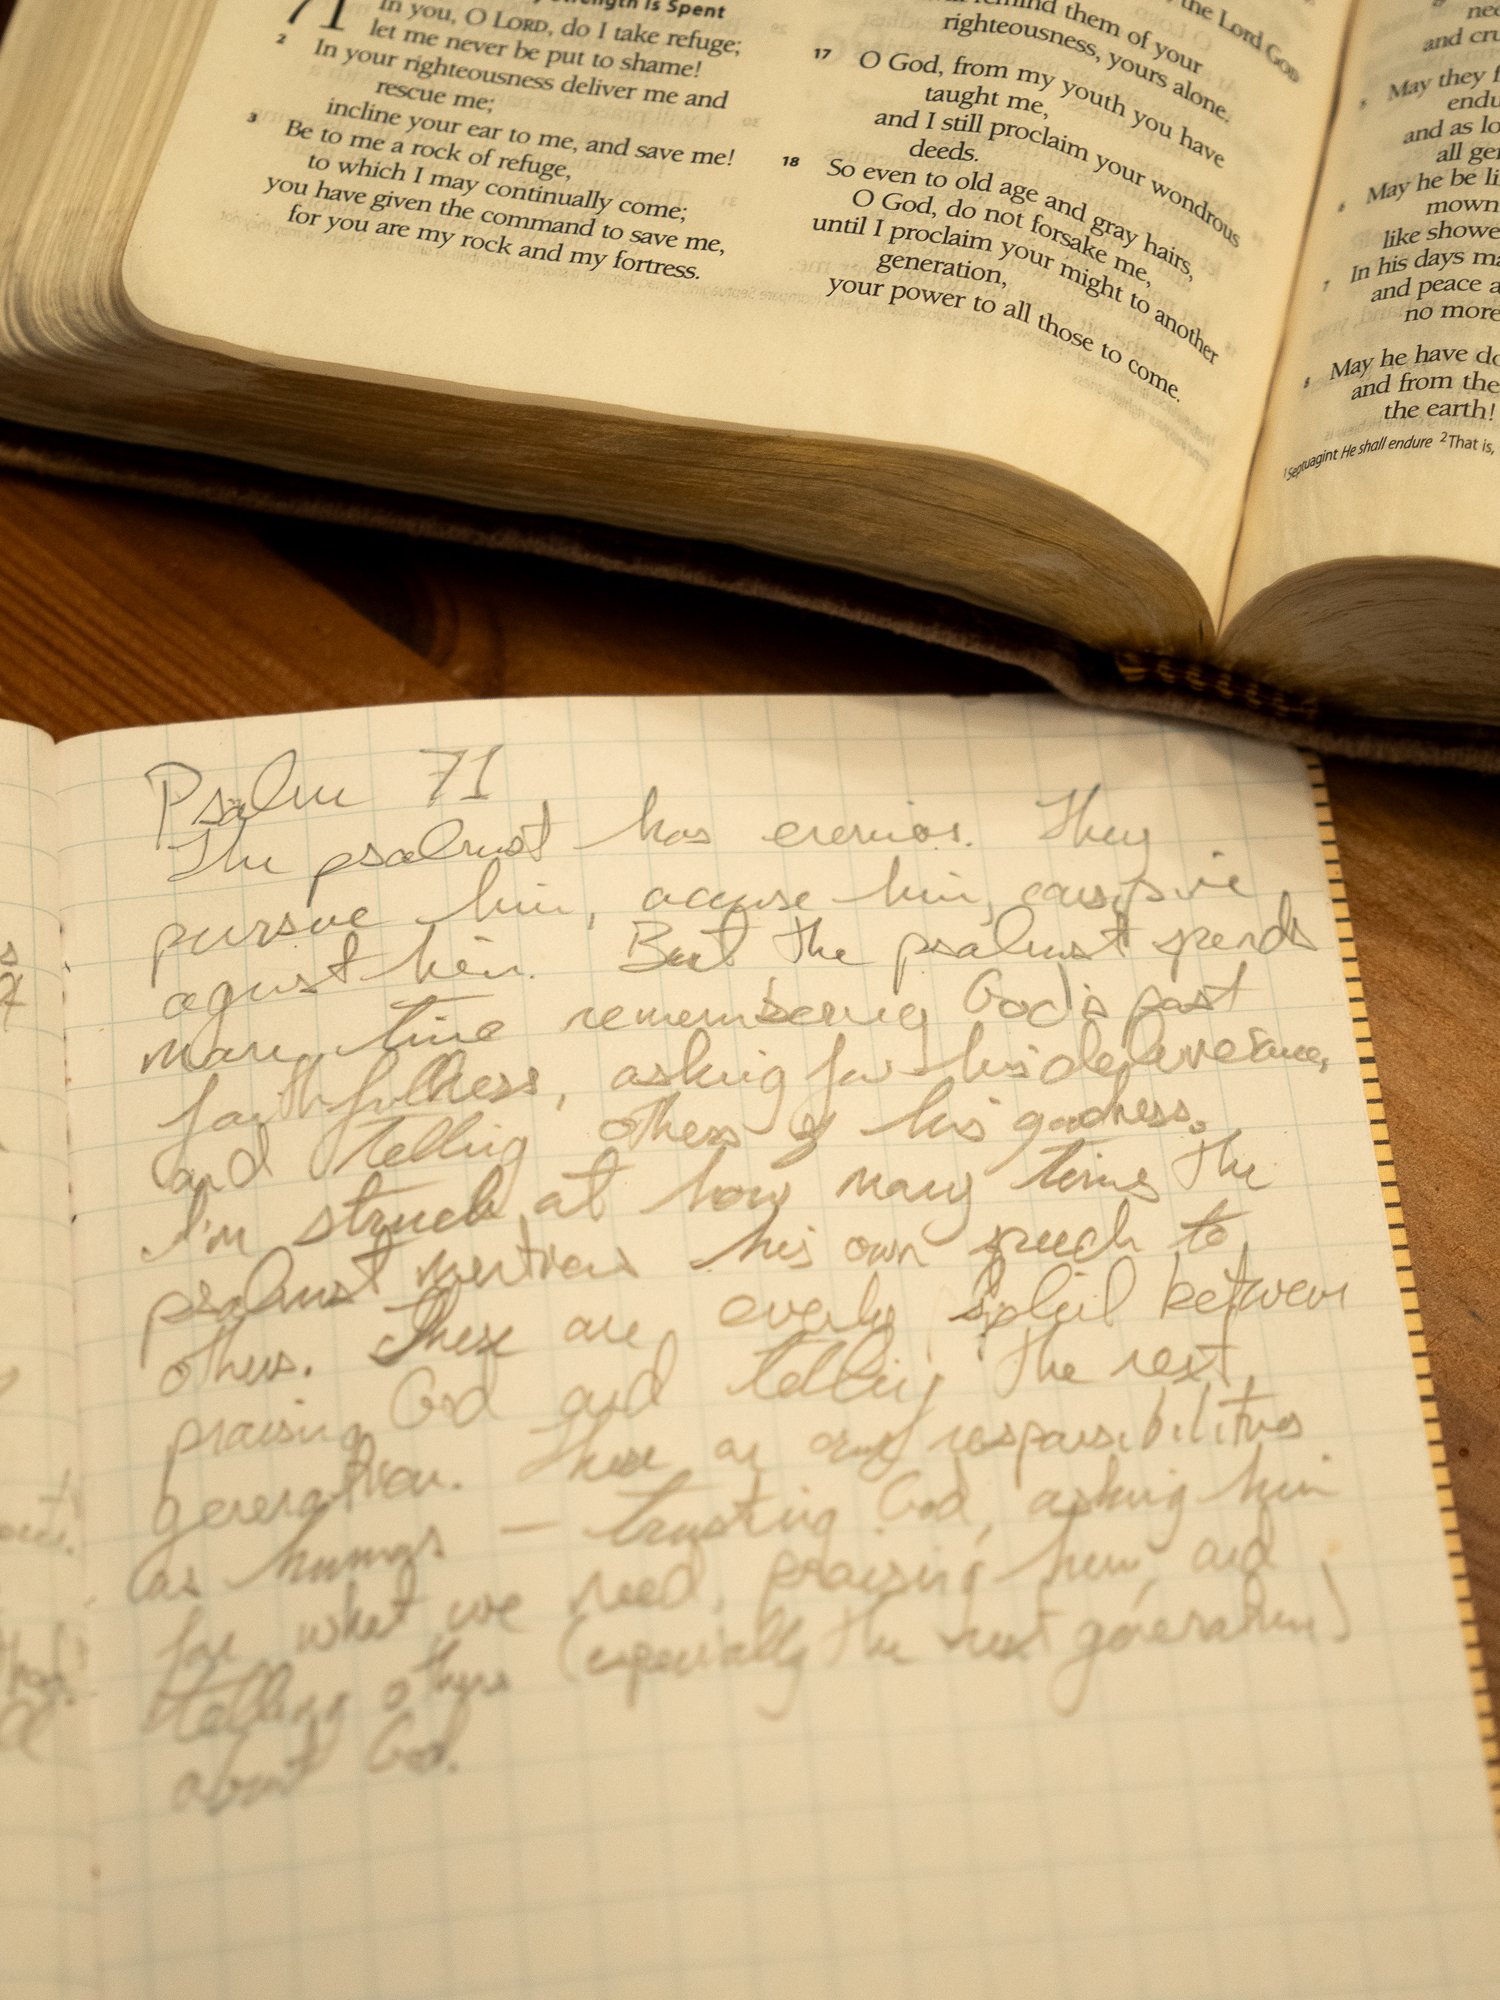 71
Strength Is Spent
In you, O LORD, do I take refuge;
let me never be put to shame!
2 In your righteousness deliver me and
rescue me;
incline your ear to me, and save me!
3 Be to me a rock of refuge,
to which I may continually come;
you have given the command to save me,
for you are my rock and my fortress.
the Lord God
remind them of your
righteousness, yours alone.
17 O God, from my youth you have
taught me,
and I still proclaim your wondrous
deeds.
18 So even to old age and gray hairs,
O God, do not forsake me,
until I proclaim your might to another
generation,
your power to all those to come.
and cru
May they f
endu
and as lo
all gen
6 May he be li
mown
like showe
7 In his days ma
and peace a
no more
8 May he have do
and from the
the earth!
1 Septuagint He shall endure 2 That is,
Psalm 71
The psalmist has enemies. They
pursue him, accuse him,
against him. But the psalmist spends
more time remembering God's past
faithfulness, asking for his deliverance,
and telling others of his goodness.
I'm struck at how many times the
psalmist mentions his own speech to
others. These are evenly split between
praising God and telling the next
generation. These are our responsibilities
as humans — trusting God, asking him
for what we need, praising him, and
telling others (especially the next generation)
about God.